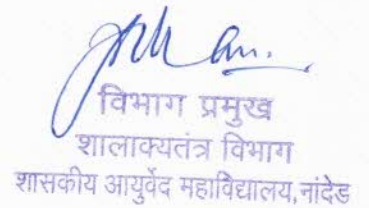 विभाग प्रमुख
शालाक्यतंत्र विभाग
शासकीय आयुर्वेद महाविद्यालय, नांदेड